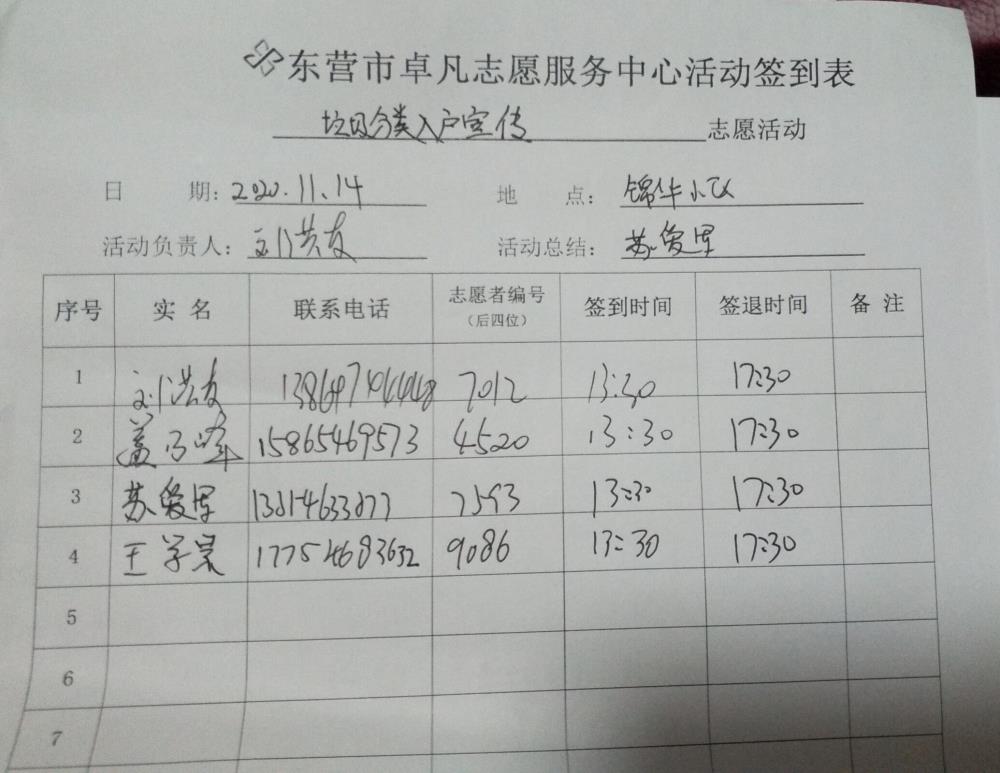 东营市卓凡志愿服务中心活动签到表
垃圾分类入户宣传 志愿活动
日 期：2020.11.14 地 点：锦华小区
活动负责人：刘洪友 活动总结：苏爱军
序号 实名 联系电话 志愿者编号（后四位） 签到时间 签退时间 备注
1 刘洪友 7012 13:30 17:30
2 盖 15865469573 4520 13:30 17:30
3 苏爱军 7593 13:30 17:30
4 王学 17754683632 9086 13:30 17:30
5
6
7